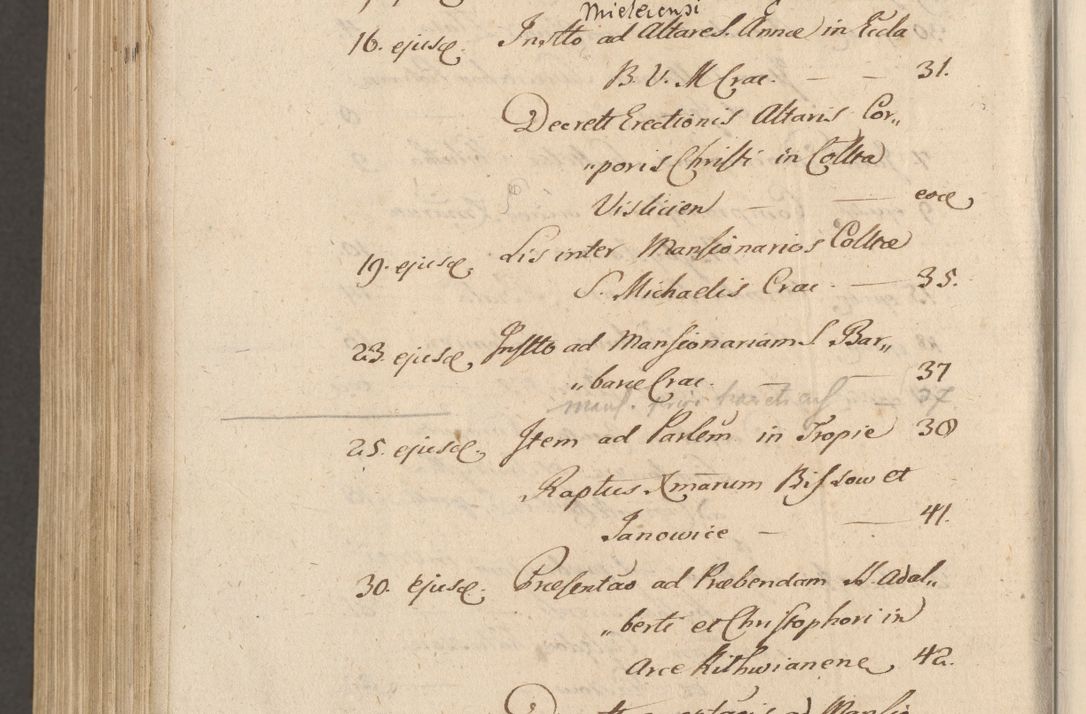 Mielecensi
16. ejusd. Instto ad Altare S. Annæ in Eccla
B. V. M Crac. — — 31.
Decrett Erectionis Altaris Cor„
„poris Christi in Collta
Vislicien — — eod.
19. ejusd. Lis inter Mansionarios Colltæ
S. Michaelis Crac. — 35.
23. ejusd. Instto ad Mansionariam S Bar„
„baræ Crac. — — 37
25. ejusd. Item ad Parlem in Tropie 38
Raptus Xmarum et
Janowice — — 41.
30. ejusd. Præsentao ad Præbendam SS. Adal„
„berti et Christophori in
Arce 42.